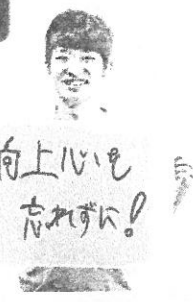 向上心を
忘れずに!